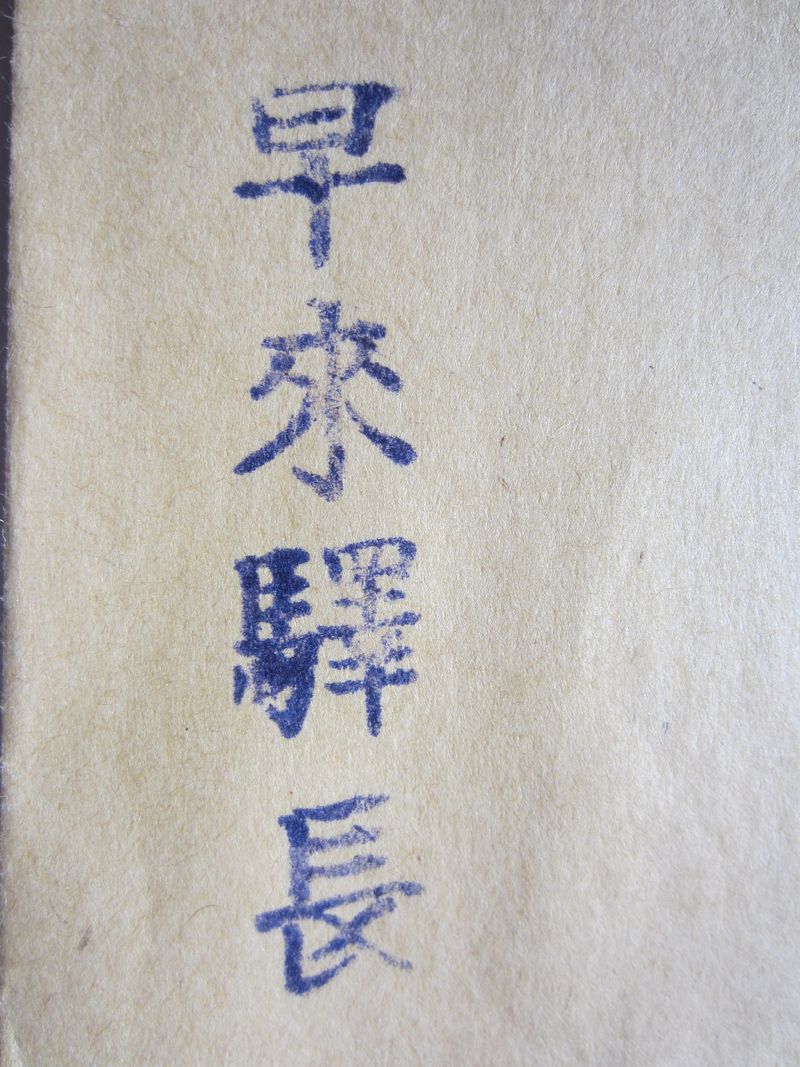 早來驛長